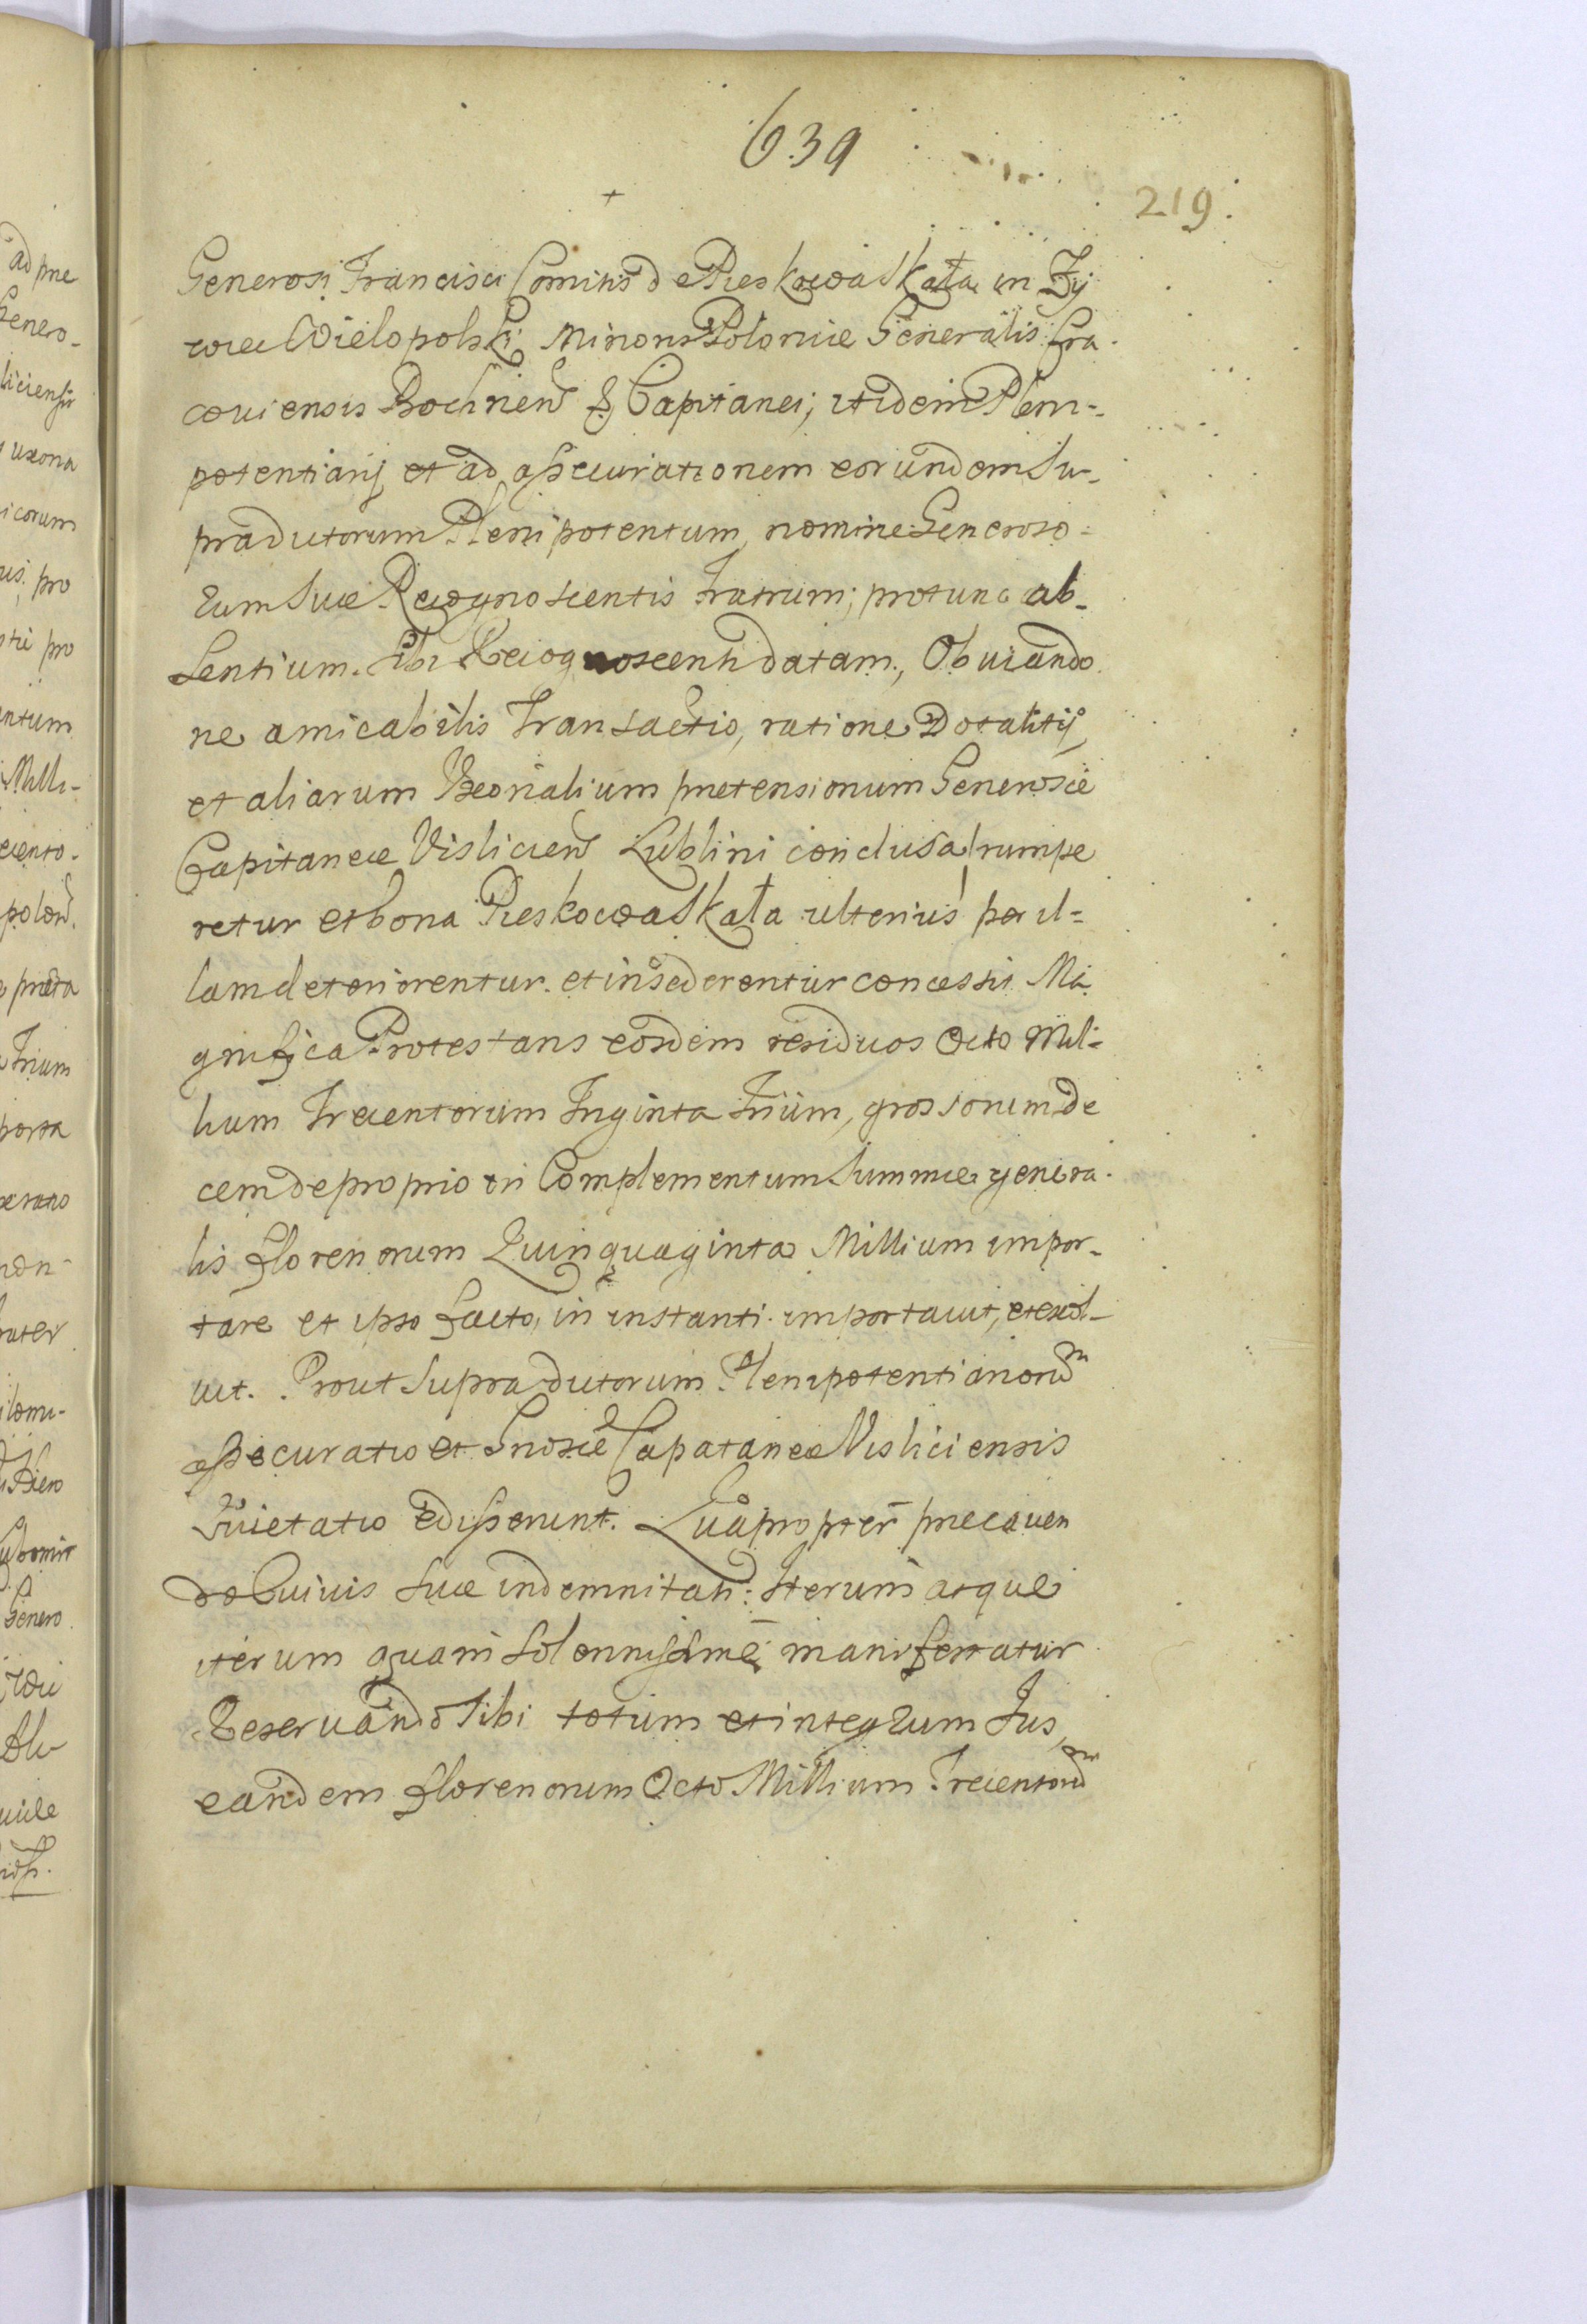 639
219.
Generosi Francisci Comitis de Pieskowa Skała in Zy
wiec Wielopolski Minoris Poloniæ Generalis Cra-
coviensis Bochnen & Capitanei; itidem Pleni-
potentiarij et ad assecurationem eorundem Su-
pradictorum Plenipotentum, nomine Generoso-
rum Suæ Recognoscentis Fratrum; protunc ab-
Sentium. Sibi Recognoscenti datam., Obuiando
ne amicabilis Transactio, ratione Dotalitij
et aliarum Uxorialium prætensionum Generosæ
Capitaneæ Vislicien Lublini conclusa rumpe
retur et bona Pieskowa Skała ulterius per il-
lam deteriorentur. et insederentur concessit Ma
gnifica Protestans eosdem residuos Octo Mil-
lium Trecentorum Triginta Trium, grossorum de
cem de proprio in Complementum Summæ genera-
lis florenorum Quinquaginta Millium impor-
tare et ipso facto, in instanti importauit, et exol-
uit. Prout Supradictorum Plenipotentiariorum
assecuratio et Gnosæ Capataneæ Visliciensis
Quietatio edisserunt. Quapropter præcauen
do Cuiuis Suæ indemnitati: Iterum atque
iterum quam Solennissime manifestatur
Reseruando Sibi totum et integrum Jus,
eandem florenorum Octo Millium Trecentorum
ad præ
Genero-
liciensis
uxoria
icorum
pro
pro
entum
Milli-
Trium